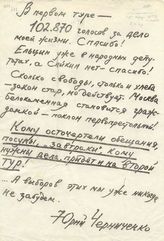 В первом туре —
102.870 голосов за дело
моей жизни. Спасибо!
Ельцин уже в народных депу-
татах, а Ёлкин нет - спасибо!
Сколько свободы, столько и хлеба
- закон стар, но действует. Москва
Белокаменная становится граж-
данской - поклон первопрестольной!
Кому осточертели обещания,
посулы, "завтраки", кому
нужны дела, придет и на второй
тур!
А выборов этих мы уже никогда
не забудем.
Юрий Черниченко